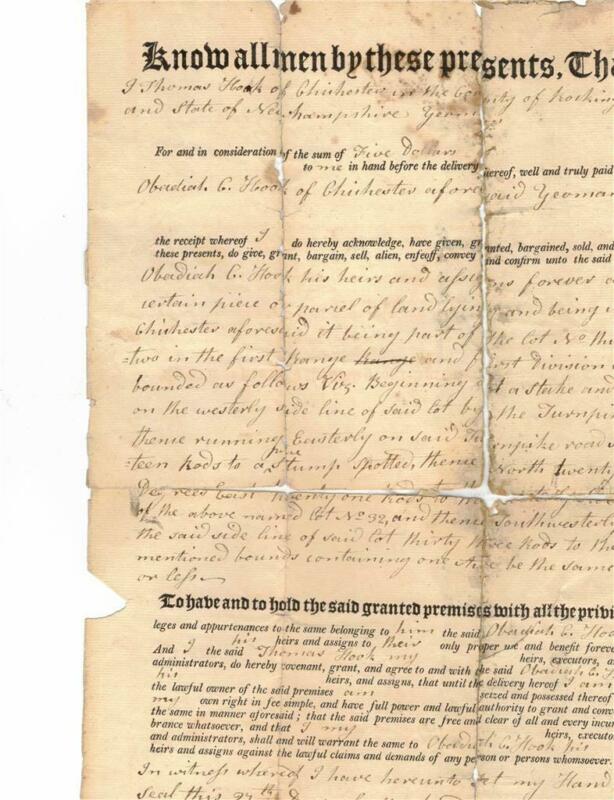 Know all men by these presents, Tha
I Thomas Hook of Chichester in the County of Rocking
and State of Newhampshire Yeoman
For and in consideration of the sum of Five Dollars
to me in hand before the delivery hereof, well and truly paid
Obadiah C. Hook of Chichester aforesaid Yeoman
the receipt whereof I do hereby acknowledge, have given, granted, bargained, sold, and
these presents, do give, grant, bargain, sell, alien, enfeoff, convey and confirm unto the said
Obadiah C. Hook his heirs and assigns forever a
certain piece or parcel of land lying and being i
Chichester aforesaid it being part of the Lot No thi
=two in the first Range Range and first Division
bounded as follows Viz. Beginning at a stake and
on the westerly side line of said lot by the Turnpi
thence running Easterly on said Turnpike road s
=teen Rods to a pine Stump spotted, thence North twenty
Degrees East twenty one Rods to the
of the above named Lot No 32, and thence Southwester
the said side line of said lot thirty three Rods to th
mentioned bounds containing one Acre be the same
or less
To have and to hold the said granted premises with all the privi
leges and appurtenances to the same belonging to him the said Obadiah C. Hook
his heirs and assigns to their only proper use and benefit foreve
And I the said Thomas Hook my heirs, executors, a
administrators, do hereby covenant, grant, and agree to and with the said Obadiah C.
his heirs, and assigns, that until the delivery hereof I am
the lawful owner of the said premises am seized and possessed thereof
my own right in fee simple, and have full power and lawful authority to grant and conv
the same in manner aforesaid; that the said premises are free and clear of all and every incum
brance whatsoever, and that I my heirs, executo
and administrators, shall and will warrant the same to Obadiah C. Hook his
heirs and assigns against the lawful claims and demands of any person or persons whomsoever.
In witness whereof I have hereunto set my Hand
seal this 27th